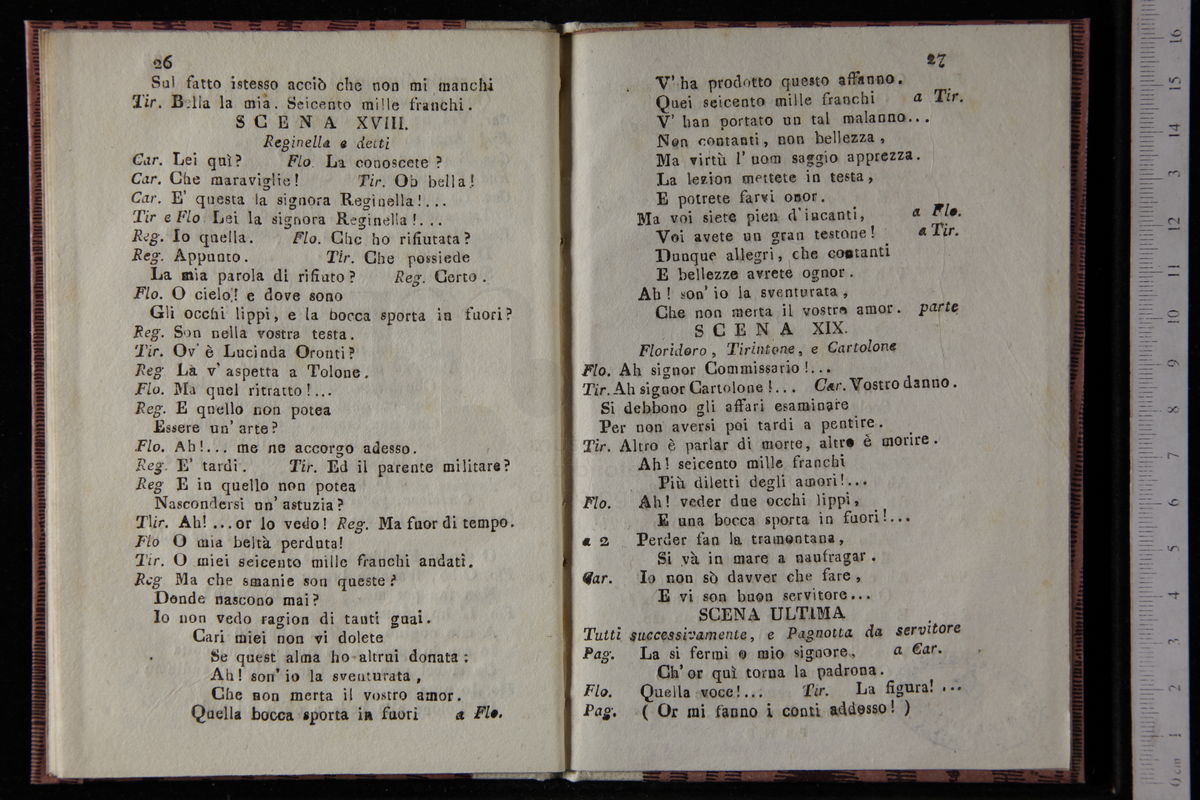 26
Sul fatto istesso acciò che non mi manchi
Tir. Bella la mia. Seicento mille franchi.
SCENA XVIII.
Reginella e detti
Car. Lei quì? Flo. La conoscete?
Car. Che maraviglie! Tir. Oh bella!
Car. E' questa la signora Reginella!...
Tir e Flo Lei la signora Reginella!...
Reg. Io quella. Flo. Che ho rifiutata?
Reg. Appunto. Tir. Che possiede
La mia parola di rifiuto? Reg. Certo.
Flo. O cielo! e dove sono
Gli occhi lippi, e la bocca sporta in fuori?
Reg. Son nella vostra testa.
Tir. Ov' è Lucinda Oronti?
Reg Là v' aspetta a Tolone.
Flo. Ma quel ritratto!...
Reg. E quello non potea
Essere un' arte?
Flo. Ah!... me ne accorgo adesso.
Reg. E' tardi. Tir. Ed il parente militare?
Reg E in quello non potea
Nascondersi un' astuzia?
Tir. Ah! ...or lo vedo! Reg. Ma fuor di tempo.
Flo O mia beltà perduta!
Tir. O miei seicento mille franchi andati.
Reg Ma che smanie son queste?
Donde nascono mai?
Io non vedo ragion di tanti guai.
Cari miei non vi dolete
Se quest alma ho altrui donata:
Ah! son' io la sventurata,
Che non merta il vostro amor.
Quella bocca sporta in fuori a Flo.
27
V' ha prodotto questo affanno.
Quei seicento mille franchi a Tir.
V' han portato un tal malanno...
Non contanti, non bellezza,
Ma virtù l' uom saggio apprezza.
La lezion mettete in testa,
E potrete farvi onor.
Ma voi siete pien d'incanti, a Flo.
Voi avete un gran testone! a Tir.
Dunque allegri, che contanti
E bellezze avrete ognor.
Ah! son' io la sventurata,
Che non merta il vostro amor. parte
SCENA XIX.
Floridoro, Tirintone, e Cartolone
Flo. Ah signor Commissario!...
Tir. Ah signor Cartolone!... Car. Vostro danno.
Si debbono gli affari esaminare
Per non aversi poi tardi a pentire.
Tir. Altro è parlar di morte, altro è morire.
Ah! seicento mille franchi
Più diletti degli amori!...
Flo. Ah! veder due occhi lippi,
E una bocca sporta in fuori!...
a 2 Perder fan la tramontana,
Si và in mare a naufragar.
Car. Io non sò davver che fare,
E vi son buon servitore...
SCENA ULTIMA
Tutti successivamente, e Pagnotta da servitore
Pag. La si fermi o mio signore, a Car.
Ch' or quì torna la padrona.
Flo. Quella voce!... Tir. La figura! ...
Pag. ( Or mi fanno i conti addosso! )
0 cm 1 2 3 4 5 6 7 8 9 10 11 12 13 14 15 16